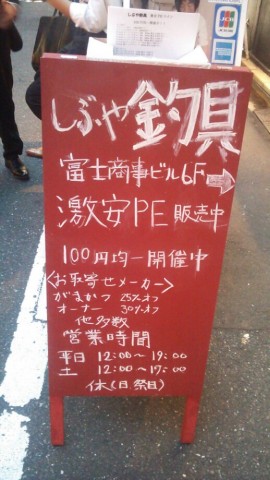 しぶや釣具
JCB
しぶや釣具
富士商事ビル6F→
激安PE販売中
100円均一開催中
<お取寄せメーカー>
がまかつ 25%オフ
オーナー 30%オフ
他多数
営業時間
平日 12:00〜19:00
土 12:00〜17:00
休(日祭日)